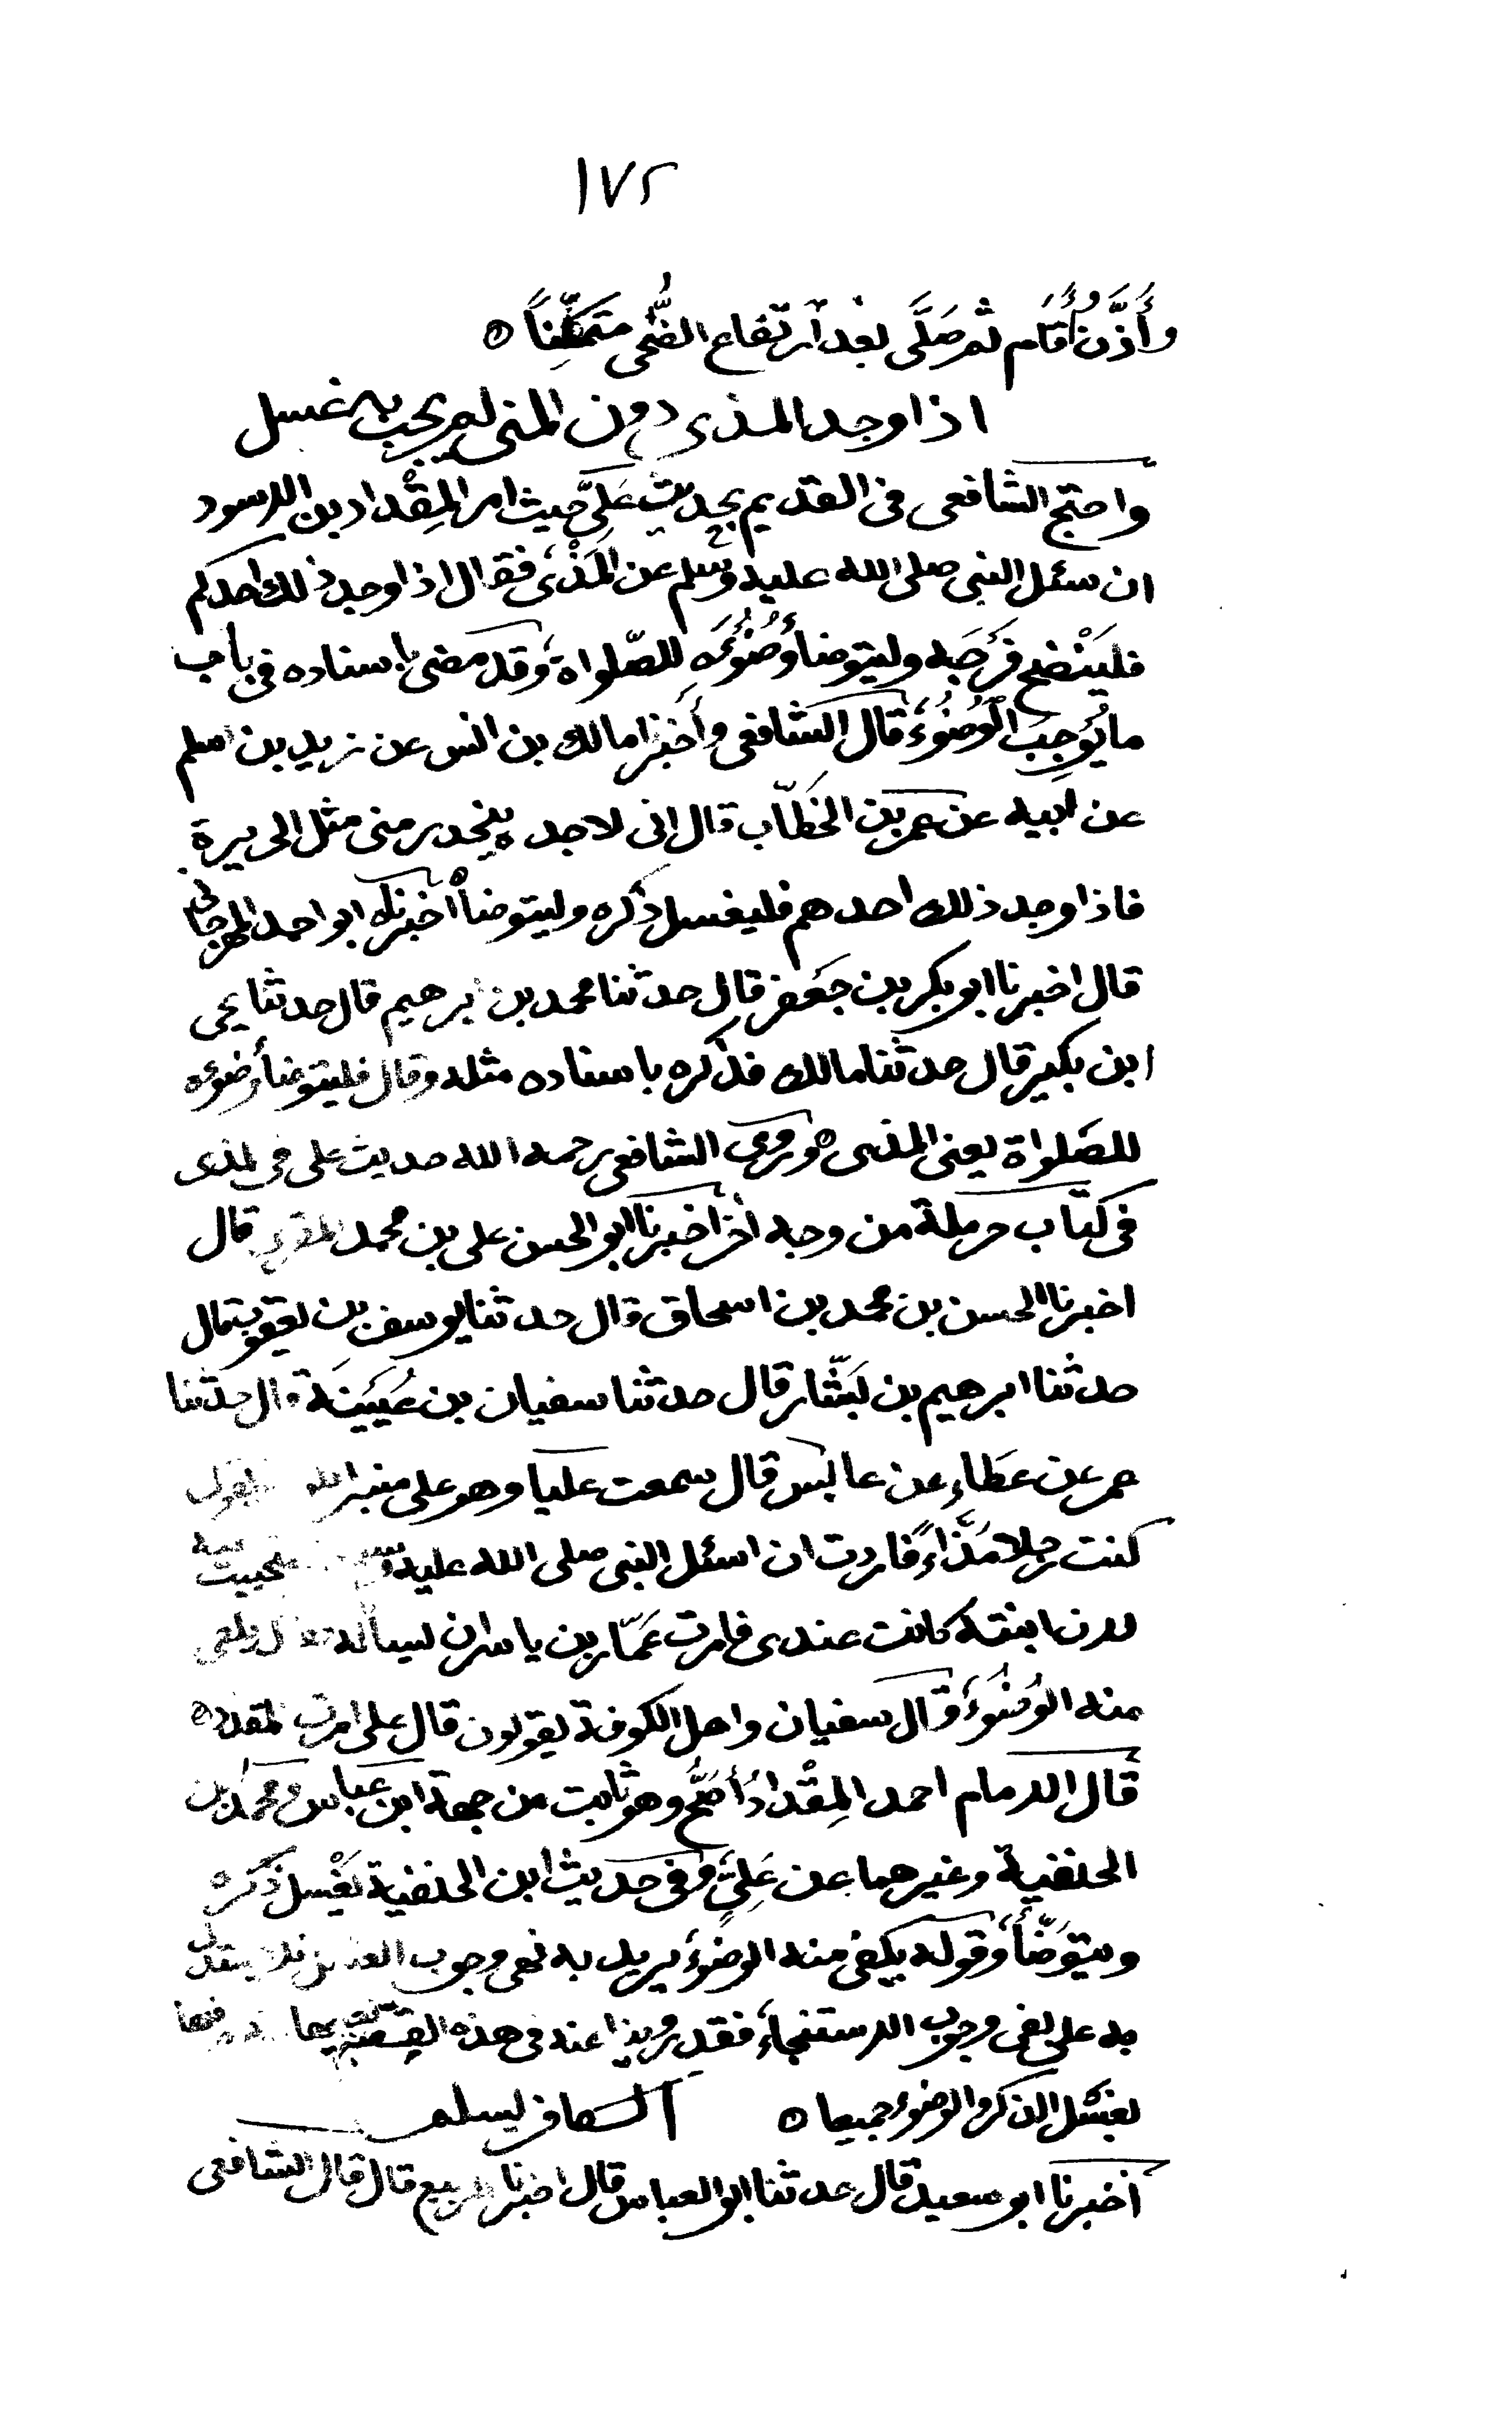 ١٧٢
وأَذَّن وأَقام ثم صَلَّى بعد ارتفاع الضُّحى متمكِّناً ٥
اذا وجد المذى دون المنى لم يجب به غسل
واحتج الشافعى فى القديم بحديث عَلىّ حيث امر المِقْداد بن الاسود
ان سئل النبى صلى الله عليه وسلم عن المَذْى فقال اذا وجد ذلك احدكم
فليَنْضح فَرَجَه وليتوضا وُضُوءَه للصّلواة وقد مضى باسناده فى باب
ما يُوجِبَ الوُضُوءَ قال الشافعى وأَخبرنا مالك بن انس عن زيد بن اسلم
عن ابيه عن عمر بن الخطّاب قال انى لاجده ينحدر منى مثل الحريرة
فاذا وجد ذلك احدهم فليغسل ذكره وليتوضأ اخبرناه ابو احمد المهرجانى
قال اخبرنا ابو بكر بن جَعفر قال حدثنا محمد بن ابرهيم قال حدثنا يحيى
ابن بكير قال حدثنا مالك فذكره باسناده مثله وقال فليتوضأ وضوءه
للصَلواة يعنى المذى ٥ وروى الشافعى رحمه الله حديث على فى المذى
فى كتاب حرملة من وجه اخر اخبرنا ابو الحسن على بن محمد المقرى قال
اخبرنا الحسن بن محمد بن اسحاق قال حدثنا يوسف بن يعقوب قال
حدثنا ابرهيم بن بَشّار قال حدثنا سفيان بن عُيَيَنَة قال حدثنا
عمر عن عطَاءٍ عن عابس قال سمعت عليا وهو على منبر يقول
كنت رجلا مَذَّاءً فاردت ان اسئل النبى صلى الله عليه فاستحييت
لان ابنته كانت عندى فامرت عَمّار بن ياسر ان يساله فقال يكفى
منه الوُضُوءَ قال سفيان واهل الكوفة يقولون قال على امرت المقداد ٥
قال الامام احمد المِقْدادُ أصَحُّ وهو ثابت من جهة ابن عباس ومحمد بن
الحنفية وغيرهما عن عَلِىٍّ وفى حديث ابن الحنفية يَغْسل ذكره
ويتوَضّأُ وقوله يكفى منه الوضوءَ يريد به نفى وجوب الغسل فلا يستدل
به على نفى وجوب الاستنجاءِ فقد روينا عنه فى هذه القصة
يغسل الذكر والوضوء جميعا ٥ الكافر يسلم
أخبرنا ابو سعيد قال حدثنا ابو العباس قال اخبرنا الربيع قال قال الشافعى